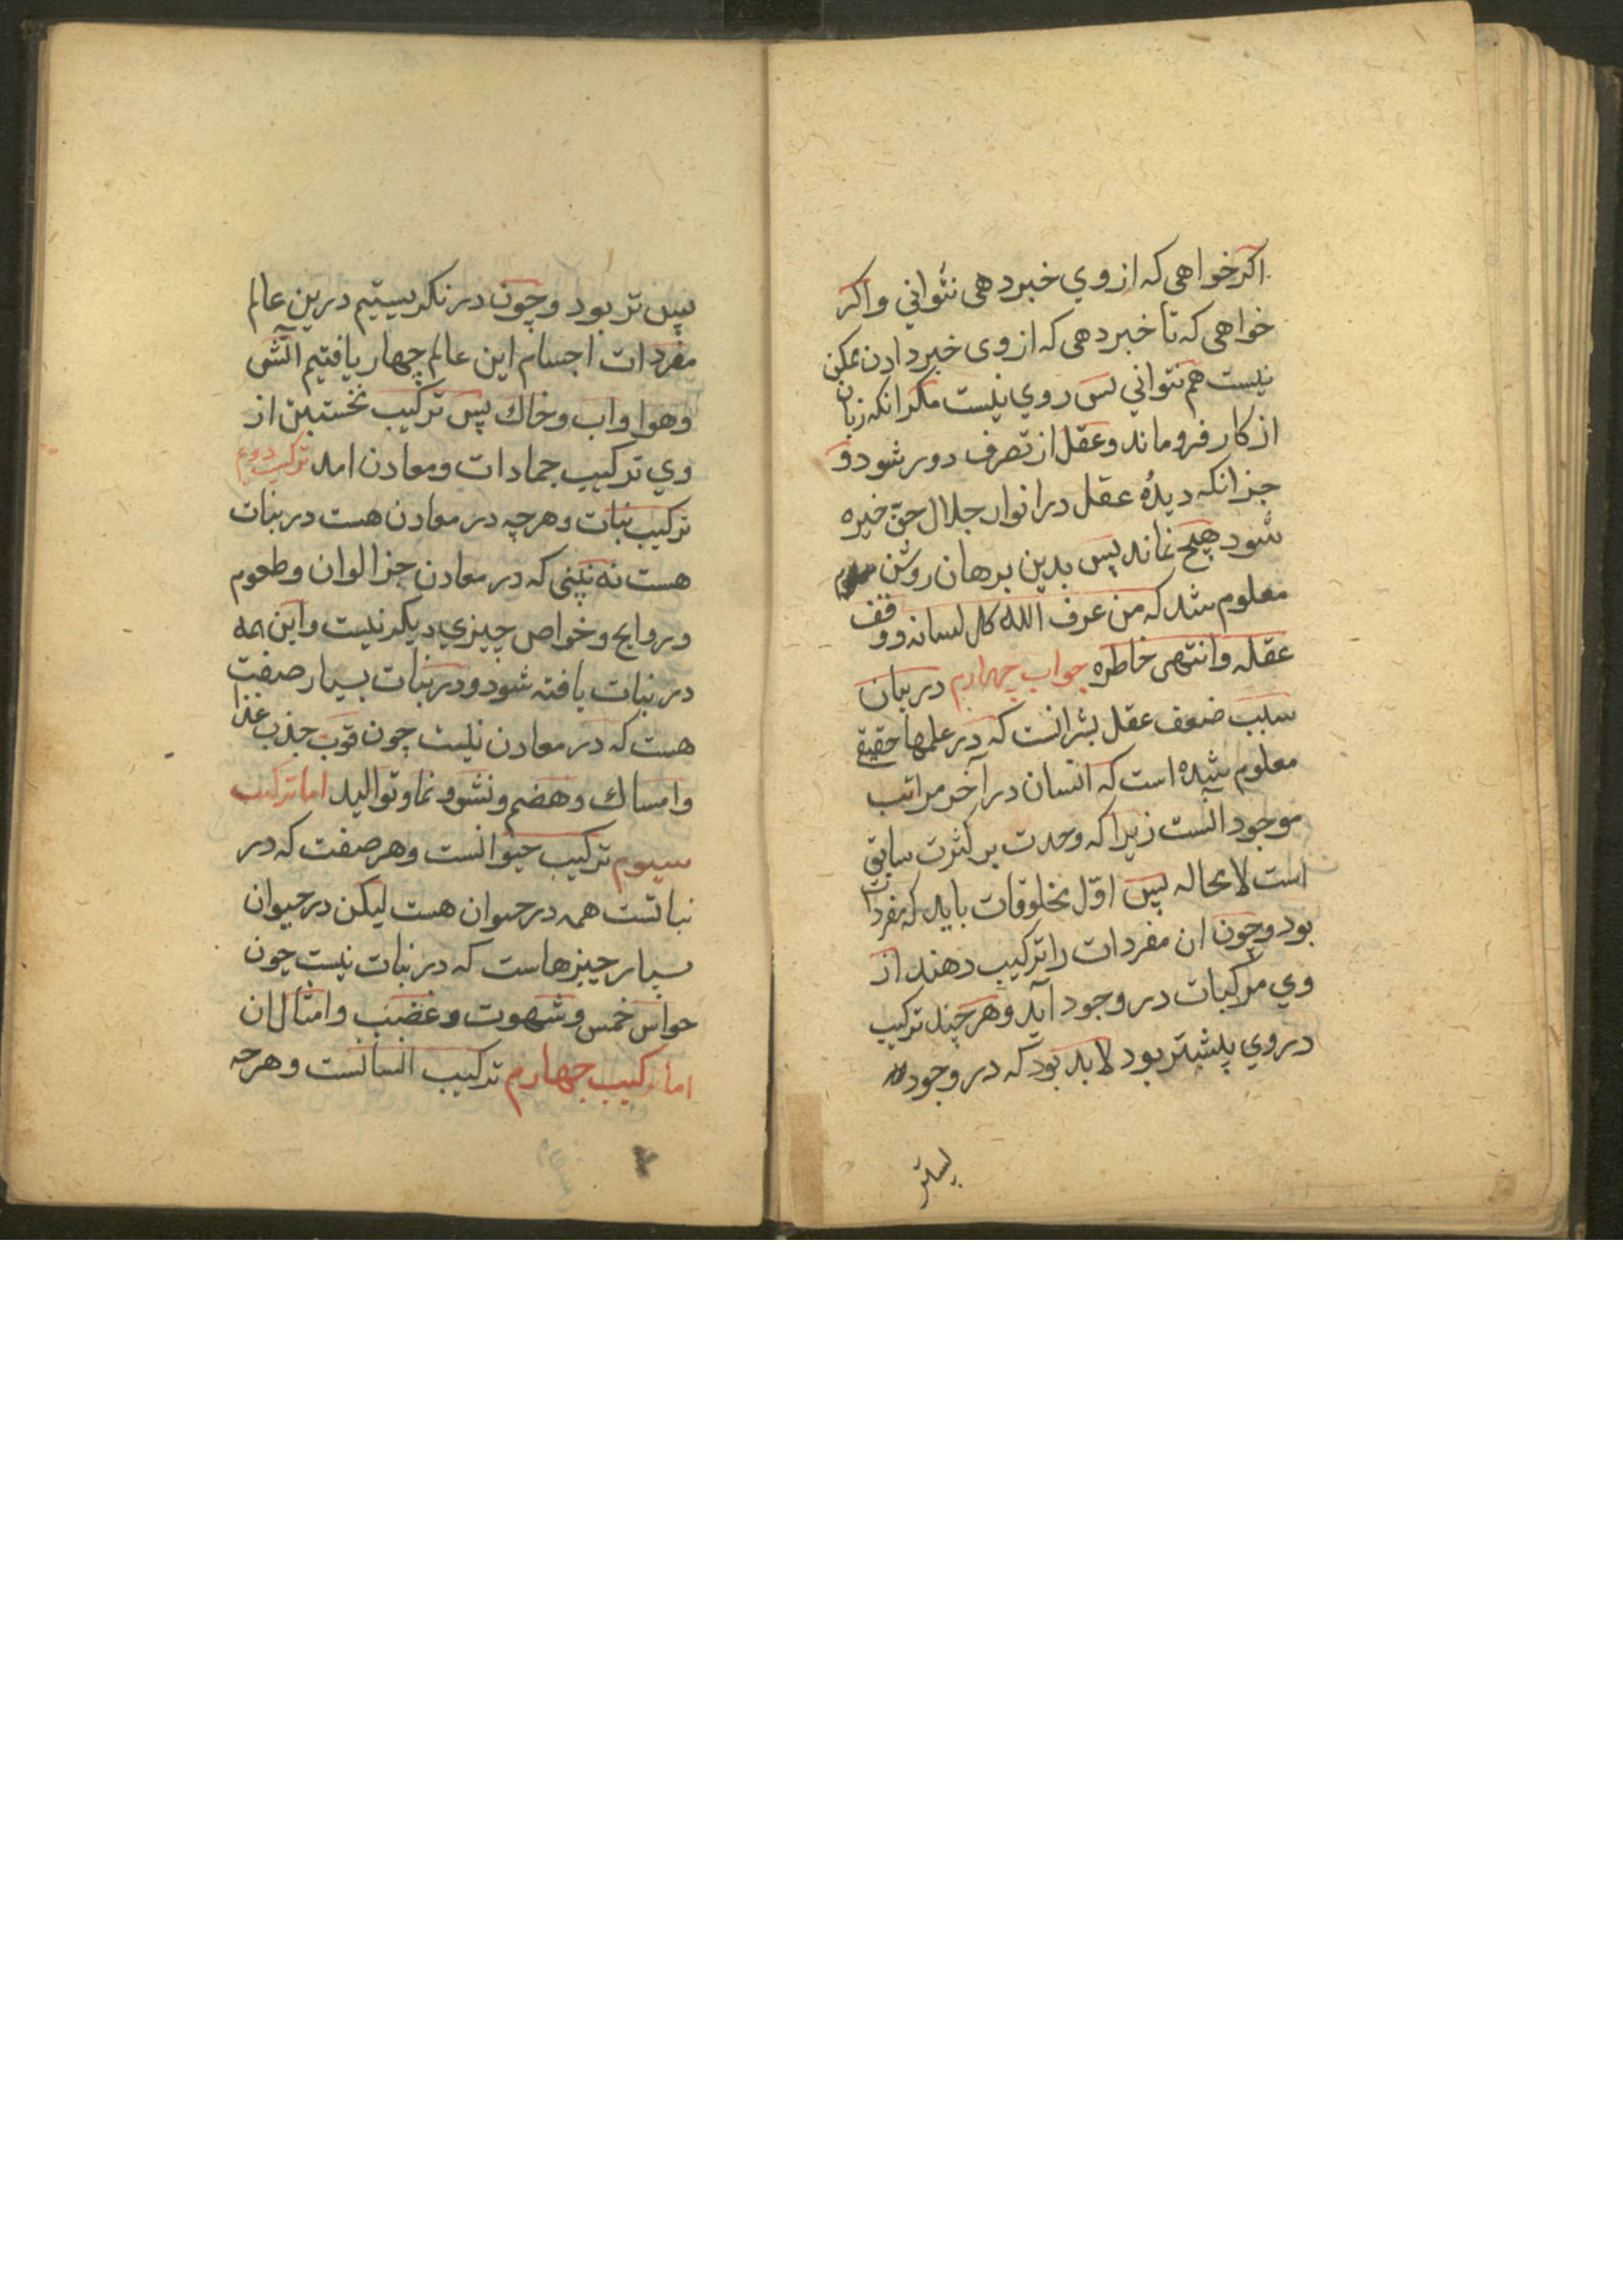 اکر خواهی که از وي خبر دهی نتواني واکر
خواهی که تا خبر دهی که از وی خبر دادن ممکن
نیست هم نتواني پس روي نیست مکر انکه زبان
از کار فرو ماند وعقل از تصرف دور شود و
جز انکه دیدهٔ عقل در انوار جلال حقّ خیره
شود هیچ نماند پس بدین برهان روشن
معلوم شد که من عرف الله کل لسانه ووقف
عقله وانتهی خاطره جواب چهارم در بیان
سبب ضعف عقل بشر انست که در علمهاء حقیقي
معلوم شده است که انسان در آخر مراتب
موجود انست زیرا که وحدت بر کثرت سابق
است لا محاله پس اوّل مخلوقات باید که مفردات
بود وچون ان مفردات را ترکیب دهند از
وي مرکبات در وجود آید وهر چند ترکیب
در وي پیشتر بود لا بد بود که در وجود
پستر
پس تر بود وچون در نکریستیم درین عالم
مفردات اجسام این عالم چهار یافتیم آتش
وهوا واب وخاك پس ترکیب نخستین از
وي ترکیب جمادات ومعادن امد ترکیب دوم
ترکیب نبات وهرچه در معادن هست در نبات
هست نه بینی که در معادن جز الوان وطعوم
وروایح وخواص چیزي دیکر نیست واین همه
در نبات یافته شود ودر نبات بسیار صفت
هست که در معادن نیست چون قوت جذب غذا
وامساك وهضم ونشو ونما وتوالید اما ترکیب
سیوم ترکیب حیوانست وهر صفت که در
نباتست همه در حیوان هست لیکن در حیوان
بسیار چیزهاست که در نبات نیست چون
حواس خمس وشهوت وغضب وامثال ان
اما ترکیب چهارم ترکیب انسانست وهرچه